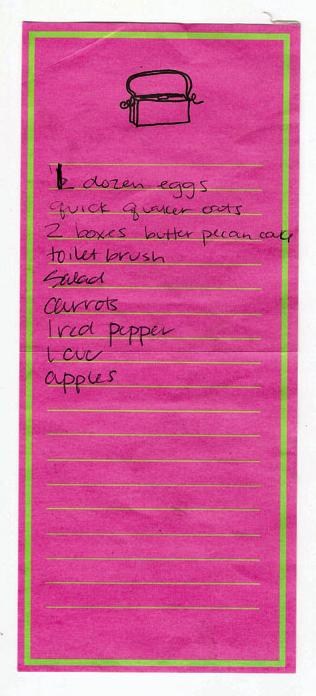 1 dozen eggs
quick quaker oats
2 boxes butter pecan cake
toilet brush
salad
carrots
1 red pepper
1 cuc
apples